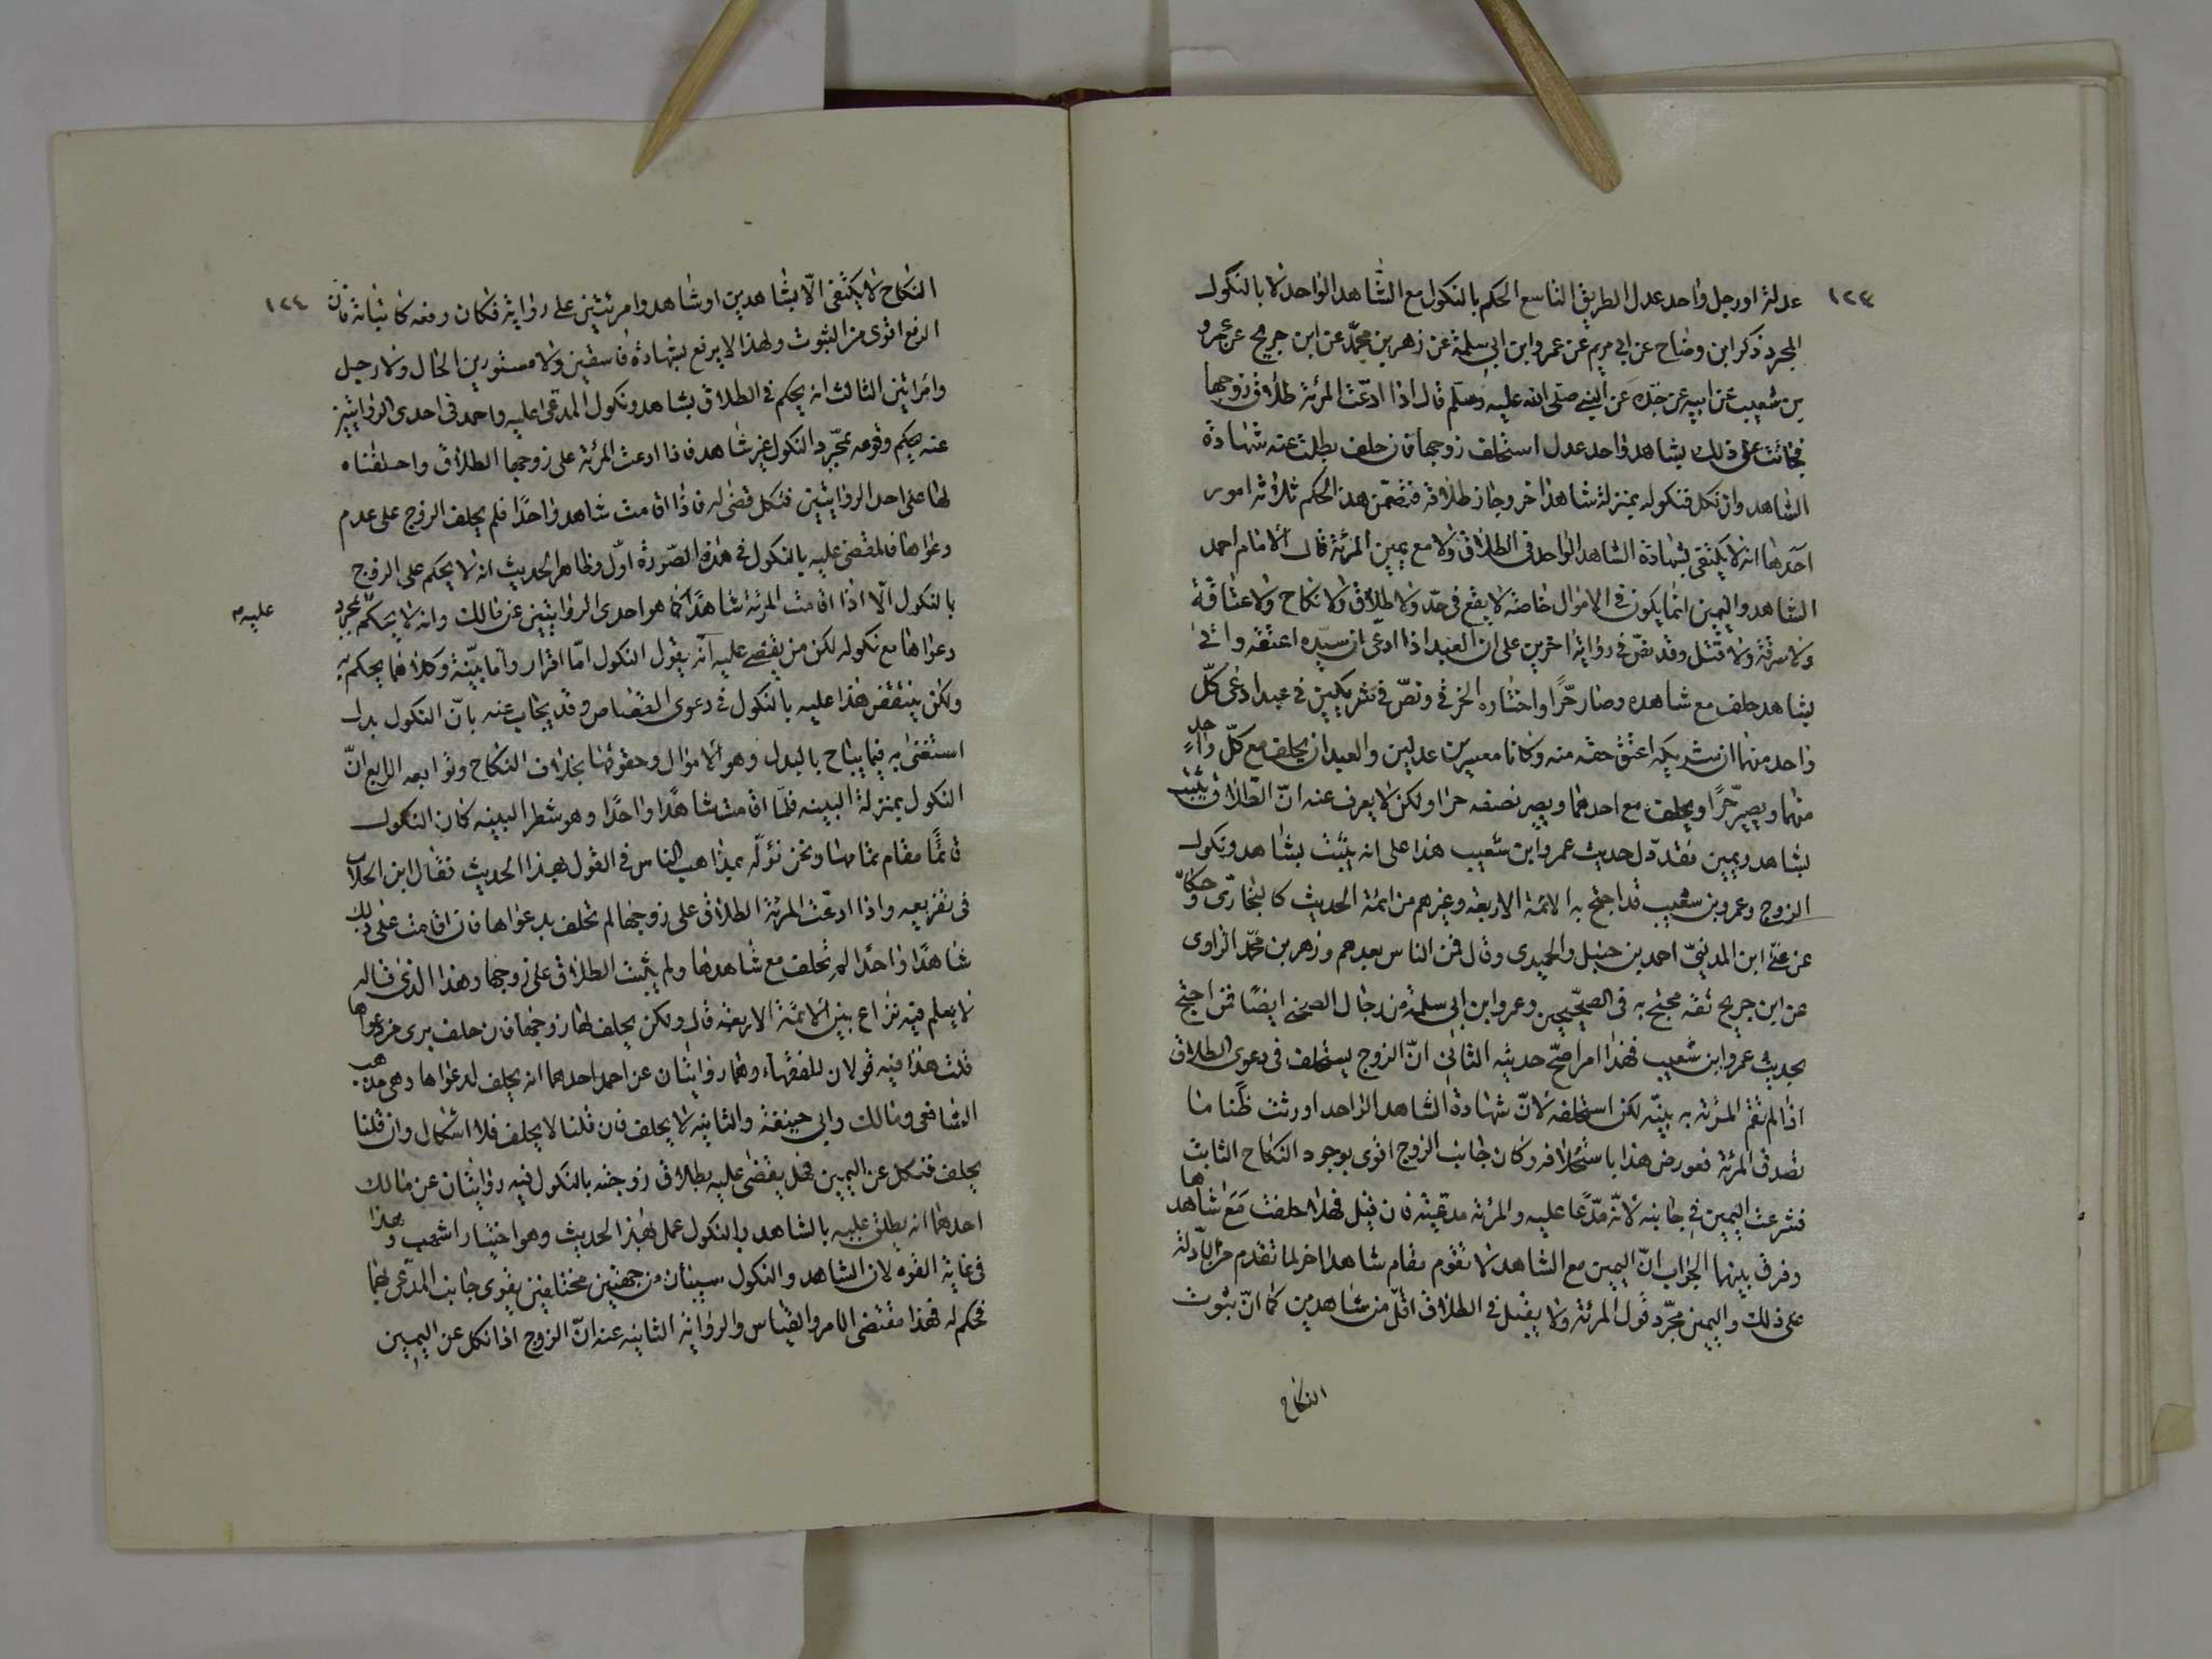 ١٢٣
عدلة او رجل واحد عدل الطريق التاسع الحكم بالنكول مع الشاهد الواحد لا بالنكول
المجرد ذكر ابن وضاح عن ابي مريم عن عمرو ابن ابي سلمة عن زهر بن محمّد عن ابن جريج عن عمرو
بن شعيب عن ابيه عن جدّه عن النبي صلى الله عليه وسلم قال اذا ادّعت المرئة طلاق زوجها
فجائت على ذلك بشاهد واحد عدل استحلف زوجها فان حلف بطلت عنه شهادة
الشاهد وان نكل فنكوله بمنزلة شاهد اخر وجاز طلاقه فتضمّن هذا الحكم ثلاثة امور
احدها انه لا يكتفى بشهادة الشاهد الواحد في الطلاق ولا مع يمين المرئة قال الامام احمد
الشاهد واليمين انما يكون في الاموال خاصة لا يقع في حدّ ولا طلاق ولا نكاح ولا عتاقة
ولا سرقة ولا قتل وقد نصّ في رواية اخرى على ان العبد اذا ادّعى ان سيّده اعتقه واتى
بشاهد حلف مع شاهده وصار حرّا واختاره الخرقي ونصّ في شريكين في عبد ادعى كلّ
واحد منهما ان شريكه اعتق حقه منه وكانا معسرين عدلين والعبد ان يحلف مع كلّ واحد
منهما ويصير حرّا ويحلف مع احدهما ويصير نصفه حرا ولكن لا يعرف عنه انّ الطلاق يثبت
بشاهد ويمين فقد دّل حديث عمرو ابن شعيب هذا على انه يثبت بشاهد ونكول
الزوج وعمرو بن شعيب قد احتج به الائمة الاربعة وغيرهم من ائمة الحديث كالبخارّي وحكاه
عن علّي ابن المدينيّ احمد بن حنبل والحميدى وقال فمن الناس بعدهم وزهر بن محمّد الراوى
عن ابن جريج ثقه محتج به في الصحيحين وعمرو ابن ابى سلمة من رجال الصحيح ايضًا فمن احتج
بحديث عمرو ابن شعيب فهذا امر اصحّ حديثه الثاني انّ الزوج يستحلف في دعوى الطلاق
اذا لم تقم المرئة به بينّه لكن استحلفه لانّ شهادة الشاهد الواحد اورثت ظنّا ما
تصدق المرئة فعورض هذا باستحلافه وكان جانب الزوج اقوى بوجود النكاح الثابت
فشرعت اليمين في جانبه لانّه مدّعا عليه والمرئة مدعية فان قيل فهلا حلفت مع شاهدها
وفرق بينهما الجواب انّ اليمين مع الشاهد لا تقوم مقام شاهد اخر لما تقدم من الادلة
على ذلك واليمين مجّرد قول المرئة ولا يقبل في الطلاق اقلّ من شاهدين كما انّ ثبوت
النكاح
١٢٤
النكاح لا يكتفى الّا بشاهدين او شاهد وامرئتين على رواية فكان رفعه كاثباته فان
الرفع اقوى من الثبوت ولهذا لا يرفع بشهادة فاسقين ولا مستورين الحال ولا رجل
وامراتين الثالث انه يحكم في الطلاق بشاهد ونكول المدعى عليه واحمد في احدى الروايتين
عنه يحكم وقوعه بمجّرد النكول غير شاهد فاذا ادعت المرئة على زوجها الطلاق واحلفناه
لها على احد الروايتين فنكل قضى له فاذا اقامت شاهدا واحدًا فلم يحلف الزوج على عدم
دعواها فالقضى عليه بالنكول في هذه الصّورة اوّل وظاهر الحديث انه لا يحكم على الزوج
بالنكول الّا اذا اقامت المرئة شاهدًا كما هو احدى الروايتين عن مالك وانه لا يحكم بمجرد
عليه
دعواها مع نكوله لكن من يقتضى عليه انّه يقول النكول امّا اقرار واما بيّنة وكلاهما يحكم به
ولكن ينتقض هذا عليه بالنكول في دعوى القصاص وقد يجاب عنه بانّ النكول بدل
استغنى به فيما يباح بالبدل وهو الاموال وحقوقها بخلاف النكاح وتوابعه الرابع انّ
النكول بمنزلة البينه فلمّا اقامت شاهدًا واحدًا وهو شطر البينه كان النكول
قائمًا مقام تمامها ونحن نؤلّه بمذاهب الناس في القول بهذا الحديث فقال ابن الجلاب
في تفريعه واذا ادعّت المرئة الطلاق على زوجها لم تحلف بدعواها فان اقامت على ذلك
شاهدًا واحدًا لم تحلف مع شاهدها ولم يثبت الطلاق على زوجها وهذا الذى قاله
لا يعلم فيه نزاع بين الائمّة الاربعة قال ولكن يحلف لها زوجها فان حلف برى من دعواها
قلت هذا فيه قولان للفقهاء وهما روايتان عن احمد احدهما انه يحلف لدعواها وهى مذهب
الشافعى ومالك وابى حنيفة والثانيه لا يحلف فان قلنا لا يحلف فلا اشكال وان قلنا
يحلف فنكل عن اليمين فهل يقضى عليه بطلاق زوجته بالنكول فيه روايتان عن مالك
احدهما انه يطلق عليه بالشاهد والنكول عمل بهذا الحديث وهو اختيار اشهب وهذا
فى غاية القوه لان الشاهد والنكول سببان من جهتين مختلفين يقوى جانب المدّعى بهما
فحكم له فهذا مقتضى الامر والقياس والرواية الثانيه عنه انّ الزوج اذا نكل عن اليمين